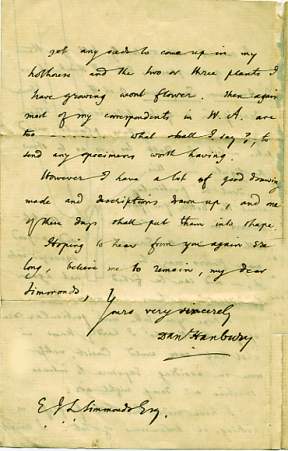 got any seeds to come up in my
hothouse and the two or three plants I
have growing wont flower. Then again
most of my correspondents in W. A. are
too - - - - - - - - what shall I say?, to
send any specimens worth having.
However I have a lot of good drawings
made and descriptions drawn up, and one
of these days shall put them into shape.
Hoping to hear from you again ere
long, believe me to remain, my dear
Simmonds,
Yours very sincerely
Danl Hanbury
E. J. L. Simmonds Esq.